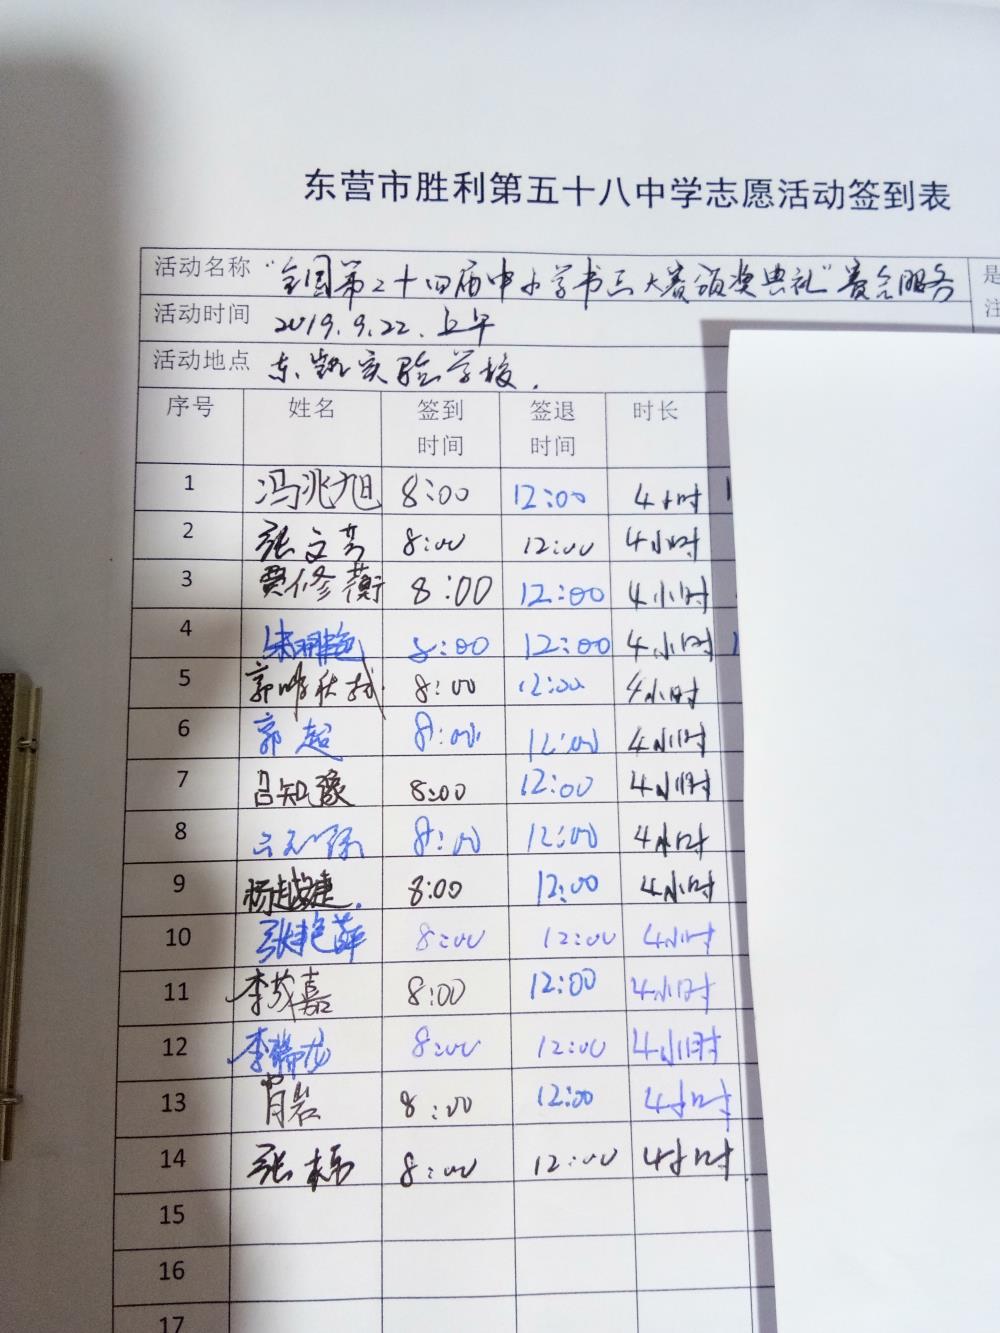 东营市胜利第五十八中学志愿活动签到表
活动名称 "全国第二十四届中小学书画大赛颁奖典礼"赛会服务
是
注
活动时间 2019.9.22.上午
活动地点 东凯实验学校.
序号 姓名 签到时间 签退时间 时长
1 冯兆旭 8:00 12:00 4小时
2 张文芳 8:00 12:00 4小时
3 贾修蘅 8:00 12:00 4小时
4 8:00 12:00 4小时
5 郭 8:00 12:00 4小时
6 郭超 8:00 12:00 4小时
7 吕知豫 8:00 12:00 4小时
8 8:00 12:00 4小时
9 杨越捷. 8:00 12:00 4小时
10 张艳萍 8:00 12:00 4小时
11 李茂嘉 8:00 12:00 4小时
12 李瑞龙 8:00 12:00 4小时
13 肖岩 8:00 12:00 4小时
14 张栋 8:00 12:00 4小时
15
16
17